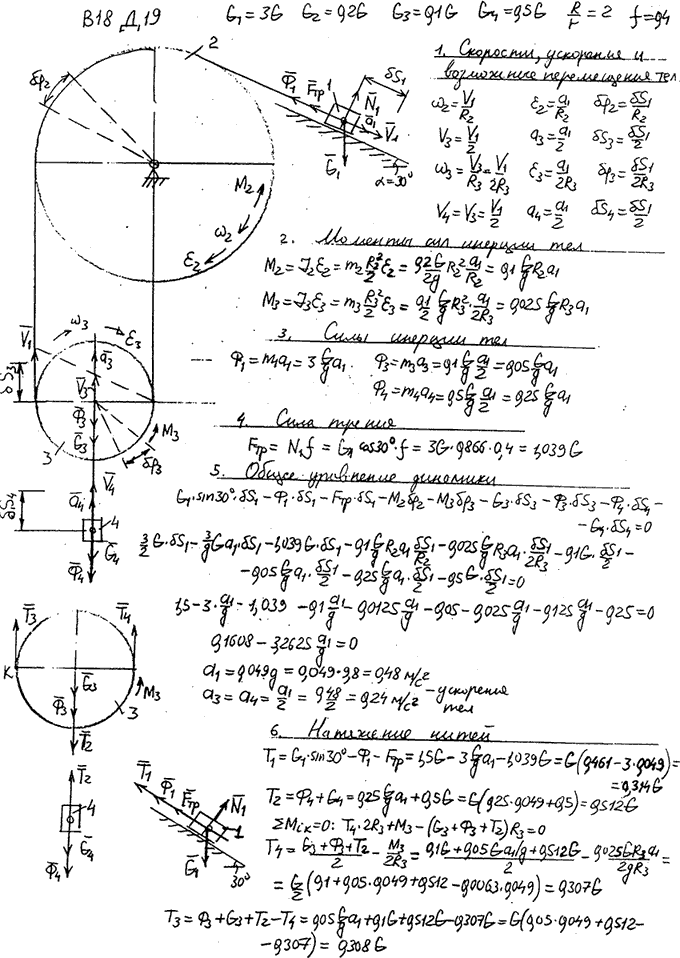 В18 Д.19 G₁ = 3G G₂ = 0,2G G₃ = 0,1G G₄ = 0,5G R/r = 2 f = 0,4
1. Скорости, ускорения и
возможные перемещения тел.
ω₂ = V₁/R₂ ε₂ = a₁/R₂ δφ₂ = δS₁/R₂
V₃ = V₁/2 a₃ = a₁/2 δS₃ = δS₁/2
ω₃ = V₃/R₃ = V₁/2R₃ ε₃ = a₁/2R₃ δφ₃ = δS₁/2R₃
V₄ = V₃ = V₁/2 a₄ = a₁/2 δS₄ = δS₁/2
2. Моменты сил инерции тел
M₂ = J₂ε₂ = m₂ R₂²/2 ε₂ = 0,2G/2g R₂² a₁/R₂ = 0,1 G/g R₂a₁
M₃ = J₃ε₃ = m₃ R₃²/2 ε₃ = 0,1/2 G/g R₃² · a₁/2R₃ = 0,025 G/g R₃a₁
3. Силы инерции тел
Φ₁ = m₁a₁ = 3 G/g a₁. Φ₃ = m₃a₃ = 0,1 G/g a₁/2 = 0,05 G/g a₁
Φ₄ = m₄a₄ = 0,5 G/g a₁/2 = 0,25 G/g a₁
4. Сила трения
Fтр = N₁f = G₁ cos30° f = 3G · 0,866 · 0,4 = 1,039G
5. Общее уравнение динамики
G₁·sin30°·δS₁ - Φ₁·δS₁ - Fтр·δS₁ - M₂δφ₂ - M₃δφ₃ - G₃·δS₃ - Φ₃·δS₃ - Φ₄·δS₄ -
- G₄·δS₄ = 0
3/2 G·δS₁ - 3/g Ga₁·δS₁ - 1,039G·δS₁ - 0,1 G/g R₂a₁ δS₁/R₂ - 0,025 G/g R₃a₁ · δS₁/2R₃ - 0,1G · δS₁/2 -
- 0,05 G/g a₁ · δS₁/2 - 0,25 G/g a₁ · δS₁/2 - 0,5G · δS₁/2 = 0
1,5 - 3·a₁/g - 1,039 - 0,1 a₁/g - 0,0125 a₁/g - 0,05 - 0,025 a₁/g - 0,125 a₁/g - 0,25 = 0
0,1608 - 3,2625 a₁/g = 0
a₁ = 0,049g = 0,049·9,8 = 0,48 м/с²
a₃ = a₄ = a₁/2 = 0,48/2 = 0,24 м/с² - ускорения
тел
6. Натяжение нитей
T₁ = G₁·sin30° - Φ₁ - Fтр = 1,5G - 3 G/g a₁ - 1,039G = G(0,461 - 3·0,049) =
= 0,314G
T₂ = Φ₄ + G₄ = 0,25 G/g a₁ + 0,5G = G(0,25·0,049 + 0,5) = 0,512G
ΣMiк = 0: T₄·2R₃ + M₃ - (G₃ + Φ₃ + T₂)R₃ = 0
T₄ = (G₃ + Φ₃ + T₂)/2 - M₃/2R₃ = (0,1G + 0,05Ga₁/g + 0,512G)/2 - 0,025GR₃a₁/2gR₃ =
= G/2 (0,1 + 0,05·0,049 + 0,512 - 0,0063·0,049) = 0,307G
T₃ = Φ₃ + G₃ + T₂ - T₄ = 0,05 G/g a₁ + 0,1G + 0,512G - 0,307G = G(0,05·0,049 + 0,512 -
- 0,307) = 0,308G
2
δφ₂
Φ₁
Fтр
N₁
δS₁
a₁
V₁
G₁
α=30°
M₂
ω₂
ε₂
ω₃
ε₃
V₁
a₃
V₃
δS₃
Φ₃
G₃
M₃
δφ₃
3
V₄
a₄
δS₄
4
G₄
Φ₄
T₃
T₄
K
G₃
M₃
Φ₃
3
T₂
T₂
4
G₄
Φ₄
T₁
Φ₁
Fтр
N₁
1
G₁
30°